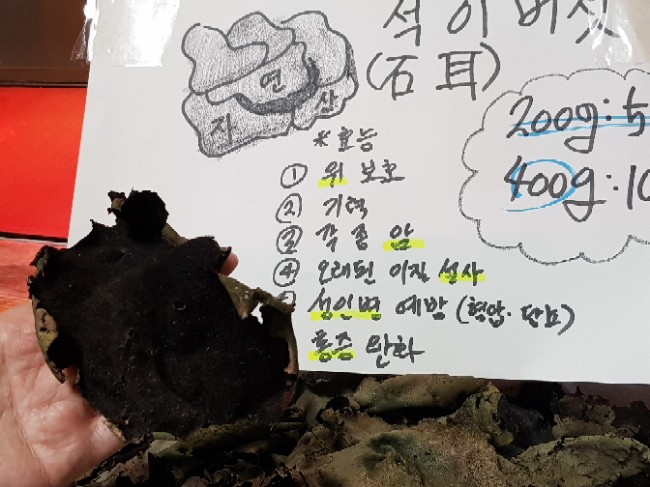 석이버섯
(石耳)
자연산
200g:5
400g:10
*효능
① 위 보호
② 기력
③ 각종 암
④ 오래된 이질 설사
성인병 예방 (혈압·당뇨)
통증 완화